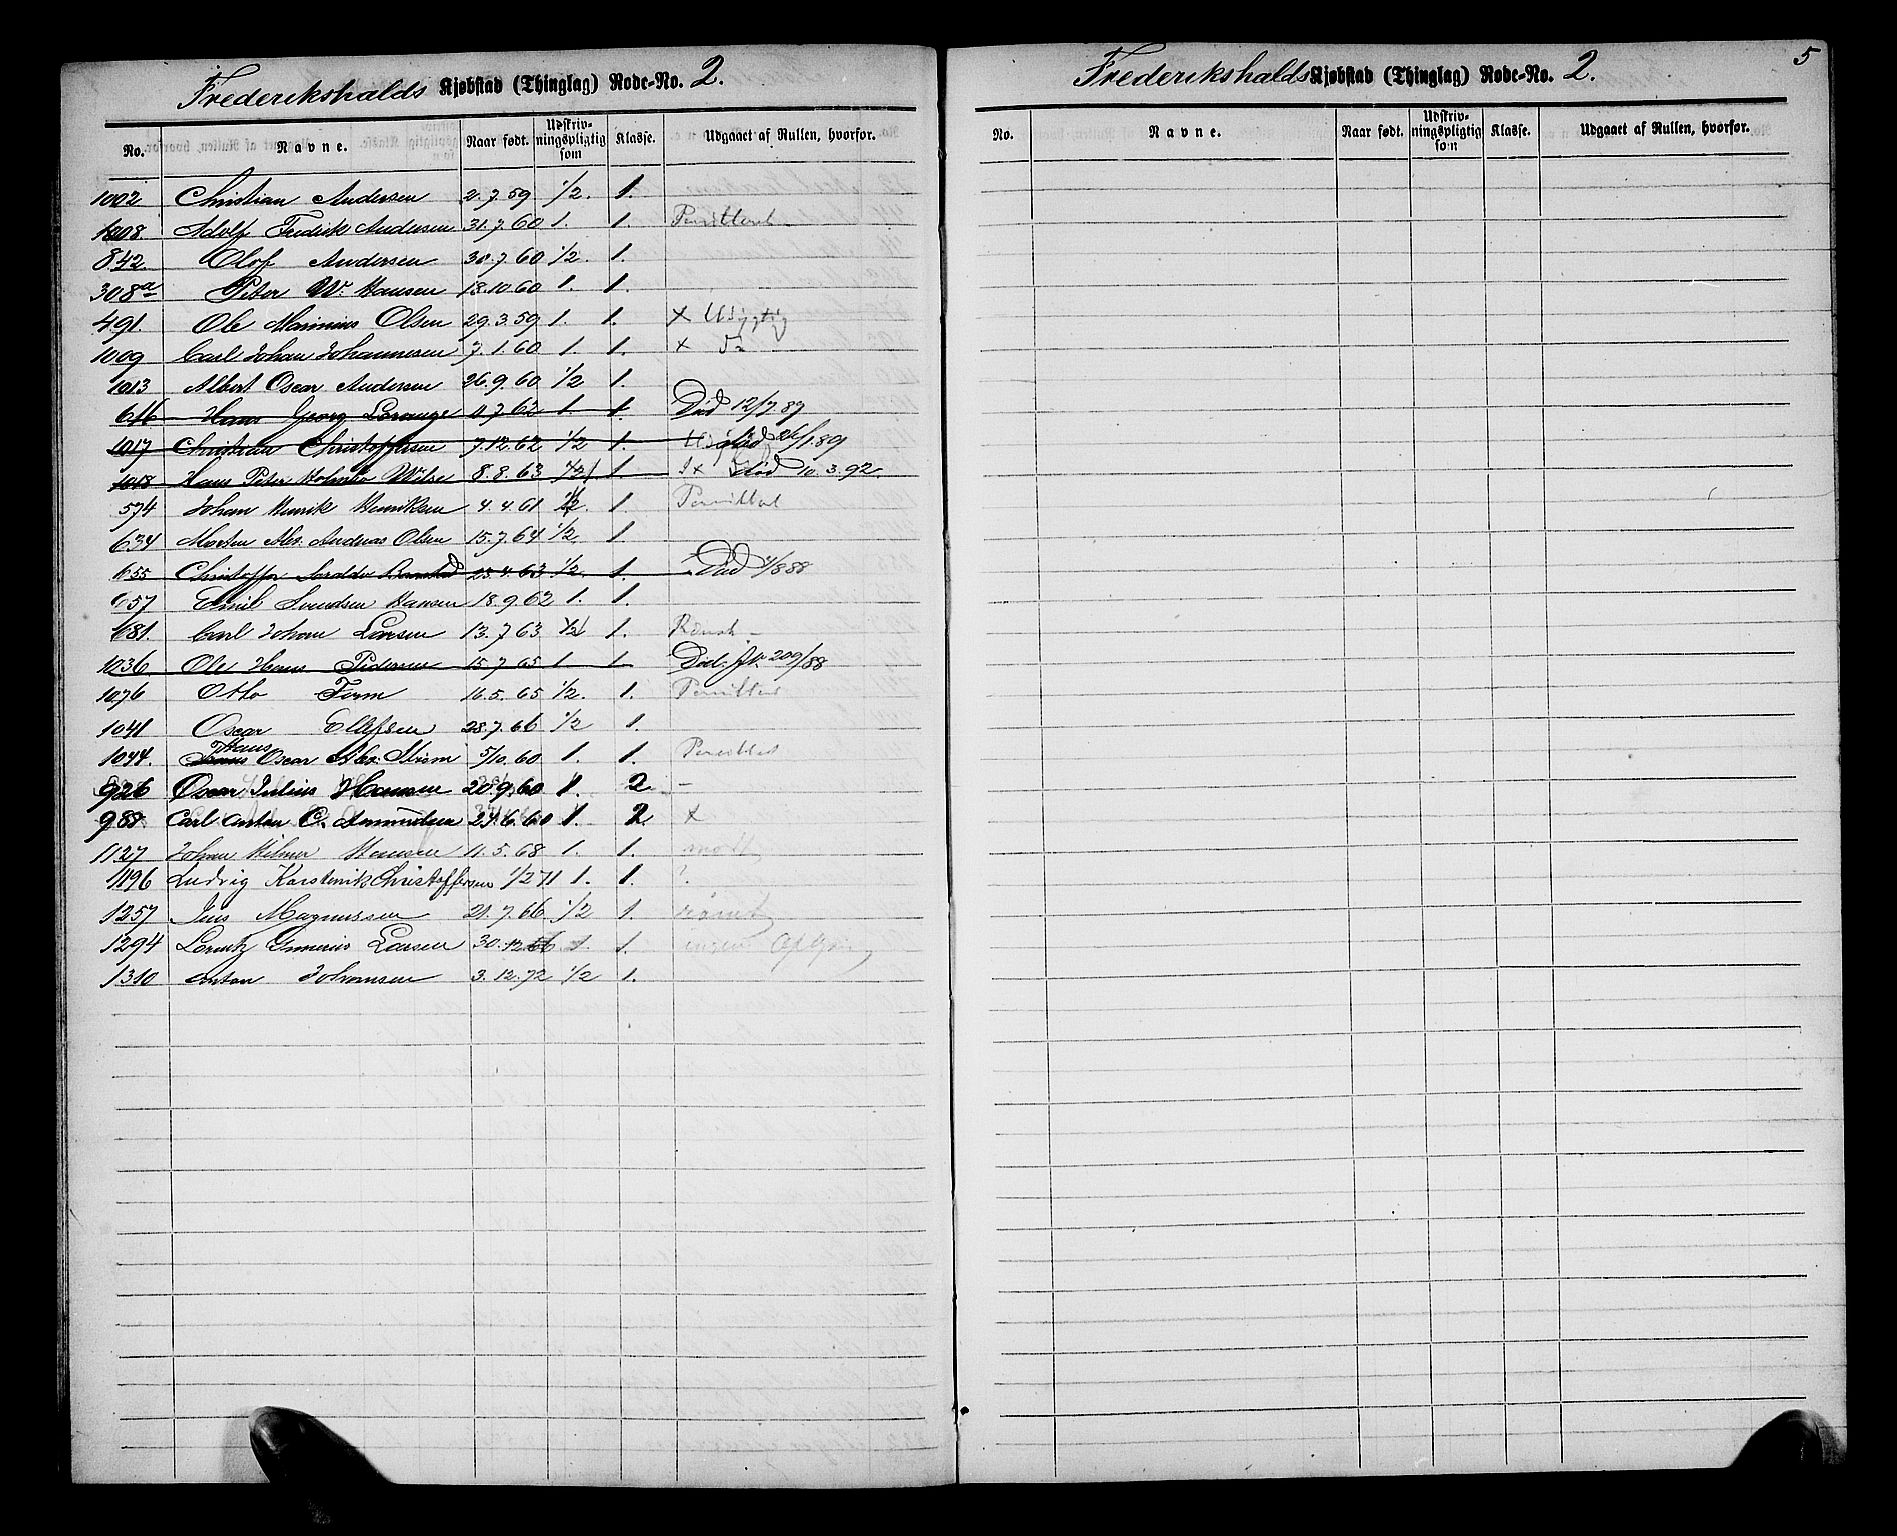 Frederikshalds Kjøbstad (Thinglag) Rode-No. 2.
No. Navne. Naar født. Udskriv-ningspligtig som Klasse. Udgaaet af Rullen, hvorfor.
1002 Christian Andersen 2.7.59 1/2. 1.
1008. Adolf Fredrik Andersen 31.7.60 1. 1.
842. Olof Andersen 30.7.60 1/2. 1.
308a Peter W. Hansen 18.10.60 1. 1.
491. Ole Marinius Olsen 29.3.59 1. 1. x Usigtig
1009 Carl Johan Johannesen 7.1.60 1. 1. x do
1013 Albert Oscar Andersen 26.9.60 1/2 1.
646 Hans Georg Lorange 11.7.62 1 1 Død 12/7 89
1017 Christian Christoffersen 7.12.62 1/2 1. død 26/1 89
1018 Hans Peter Holmbo Wilse 8.8.63 1/2 1. død 10.3.92.
574 Johan Henrik Henriksen 4.4.61 1/2. 1
634 Morten Alex. Andreas Olsen 15.7.64 1/2. 1
655 Christoffer 25.4.63 1/2. 1. Død 4/8 88
657 Emil Svendsen Hansen 18.9.62 1. 1.
681. Carl Johan Larsen 13.7.63 1/2 1.
1036. Ole Hans Pedersen 15.7.65 1 1 Død. Jk. 209/88
1076 Otto 16.5.65 1/2. 1.
1041 Oscar Ellefsen 28.7.66 1/2 1.
1044. Hans Oscar Alex. Strøm 5/10.60 1. 1.
926 Oscar Julius Hansen 20.9.60 1. 2. -
988. Carl Anton C. Asmundsen 24.6.60 1. 2. x
1127 Johan Hilmer Hansen 11.5.68 1. 1.
1196 Ludvig Karstinik Christoffersen 1/2 71 1. 1. ?.
1257 Jens Magnussen 21.7.66. 1/2 1. rømt
1294 Lorentz Larsen 30.12.66 1. 1. ingen
1310 Anton Johansen 3.12.72 1/2 1.
Frederikshalds Kjøbstad (Thinglag) Rode-No. 2. 5
No. Navne. Naar født. Udskriv-ningspligtig som Klasse. Udgaaet af Rullen, hvorfor.